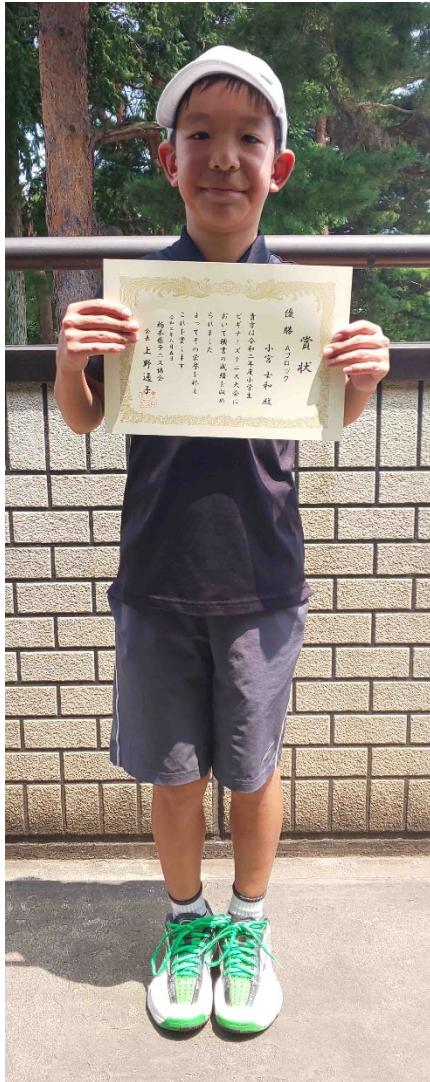 賞状
優勝 Aブロック
小宮 玄和 殿
貴方は令和二年度小学生
ビギナーズテニス大会に
おいて頭書の成績を収め
られました
よってその栄誉を称え
これを賞します
令和二年八月五日
栃木県テニス協会
会長 上野通子